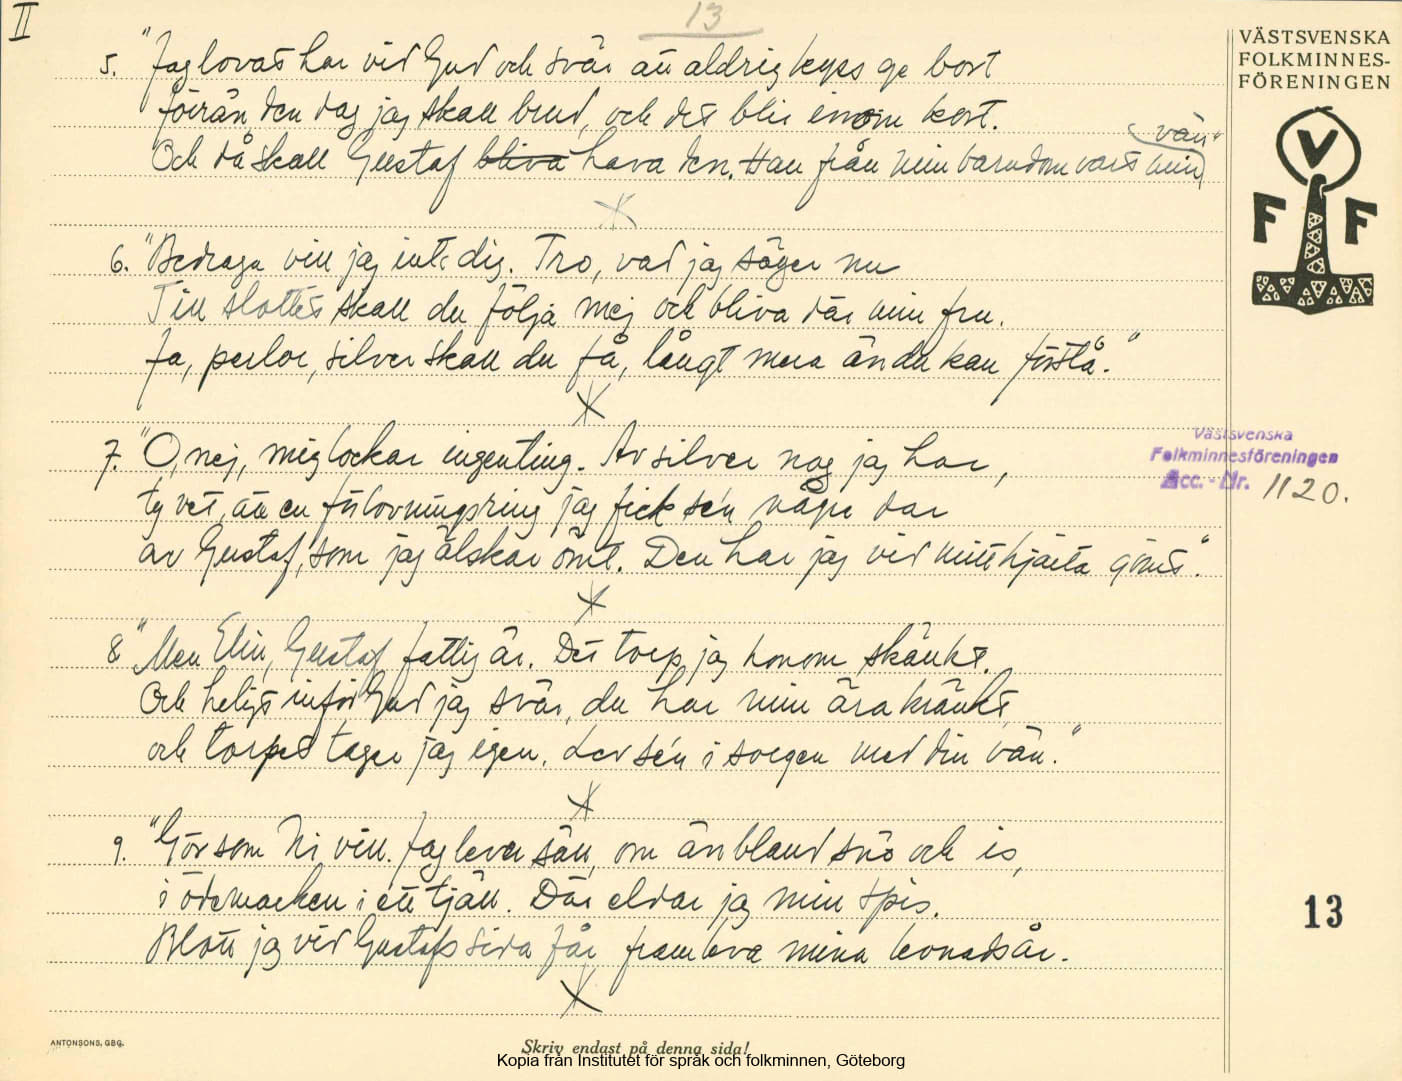 II
13
VÄSTSVENSKA
FOLKMINNES-
FÖRENINGEN
V
F F
5. "Jag lovat har vid Gud och svär att aldrig kyss ge bort
förrän den dag jag skall brud, och det blir inom kort.
Och då skall Gustaf bliva hava den. Han från min barndom varit min vän"
6. "Bedraga vill jag inte dig. Tro, vad jag säger nu
Till slottet skall du följa mej och bliva där min fru.
Ja, perlor, silver skall du få, långt mera än du kan förstå."
7. "O, nej, mig lockar ingenting. Av silver nog jag har,
ty vet, att en förlovningsring jag fick sén några dar
av Gustaf, som jag älskar ömt. Den har jag vid mitt hjärta gömt."
Västsvenska
Folkminnesföreningen
Acc.-Nr. 1120.
8 "Men Elin, Gustaf fattig är. Det torp jag honom skänkt.
Och heligt inför Gud jag svär, du har min ära kränkt,
och torpet tager jag igen. Lev sén i sorgen med din vän."
9. "Gör som Ni vill. Jag lever säll, om än bland snö och is,
i ödemarken i ett tjäll. Där eldar jag min spis.
Blott jag vid Gustafs sida får framleva mina levnadsår.
13
ANTONSONS, GBG.
Skriv endast på denna sida!
Kopia från Institutet för språk och folkminnen, Göteborg